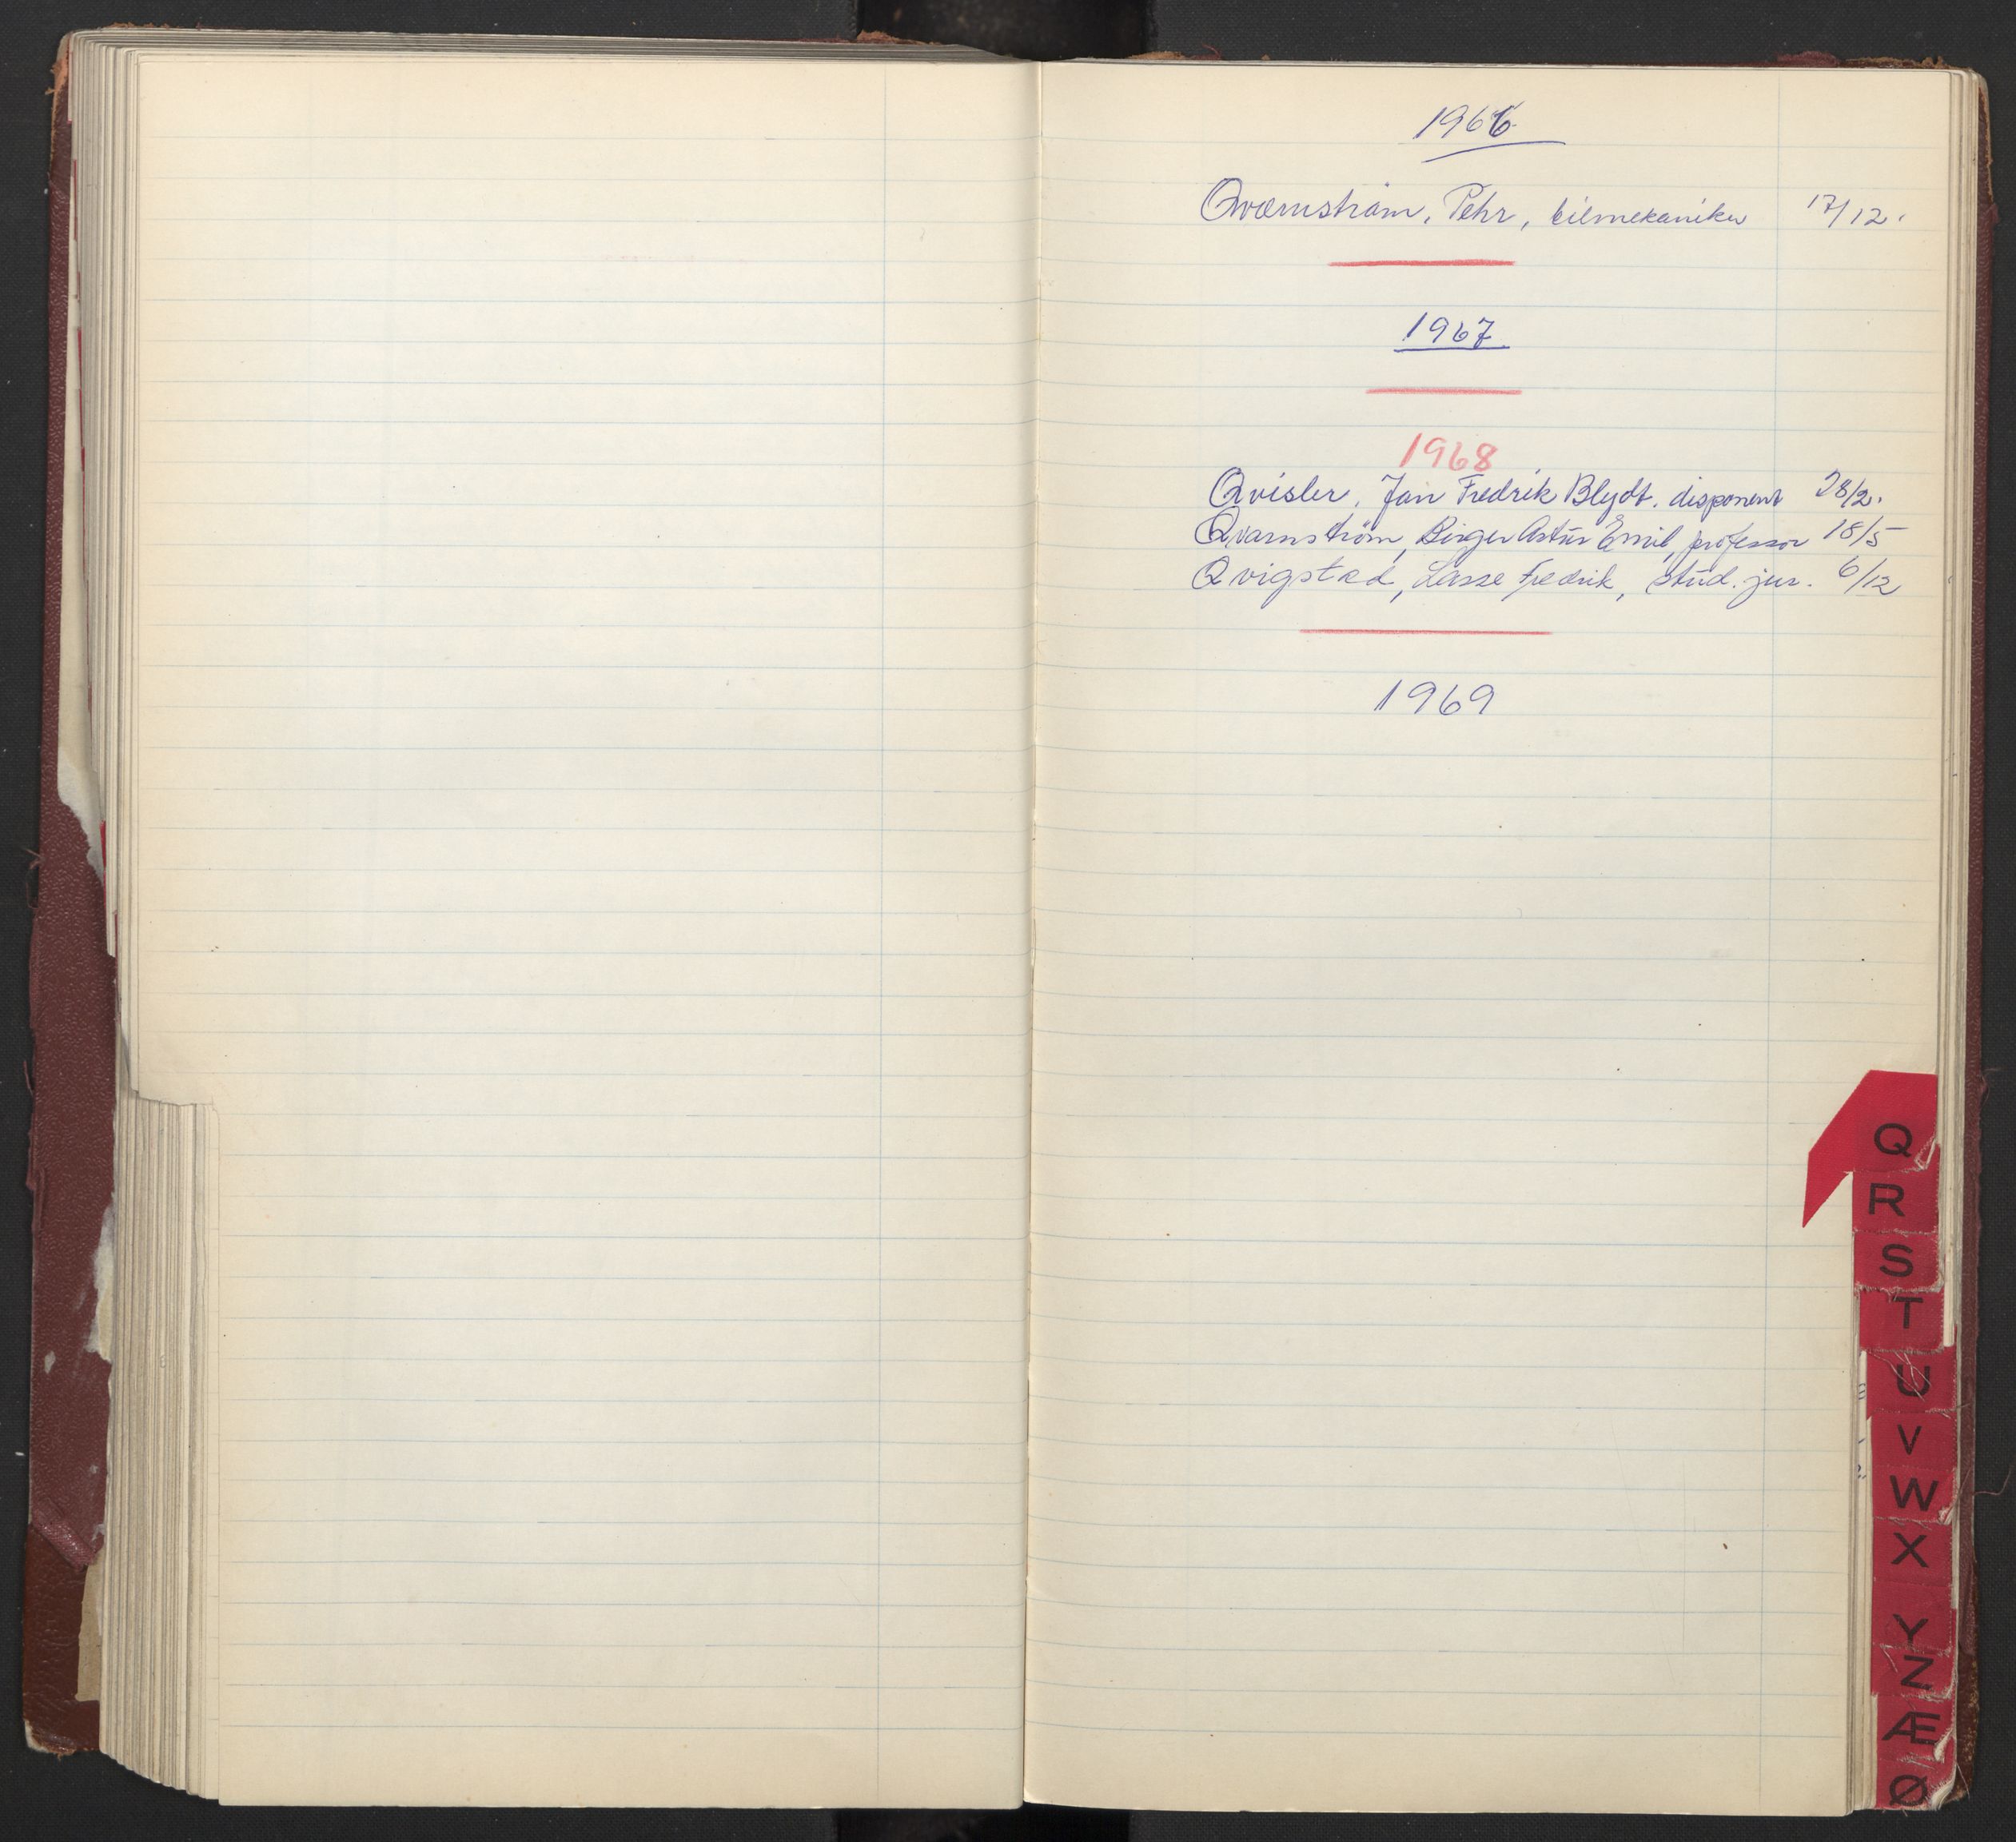 1966
Qværnstrøm, Pehr, bilmekaniker 17/12.
1967
1968
Qvisler, Jan Fredrik Blydt. disponent 28/2.
Qvarnstrøm, Birger Astur Emil, professor 18/5
Qvigstad, Lasse Fredrik, stud. jur. 6/12
1969
Q
R
S
T
U
V
W
X
Y
Z
Æ
Ø